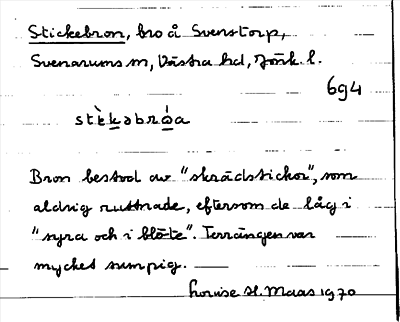 Stickebron, bro å Svenstorp,
Svenarums sn, Västra hd, Jönk. l.
694
stèkəbróa
Bron bestod av "skrädstickor", som
aldrig ruttnade, eftersom de låg i
"syra och i blöte". Terrängen var
mycket sumpig.
Louise H. Maas 1970